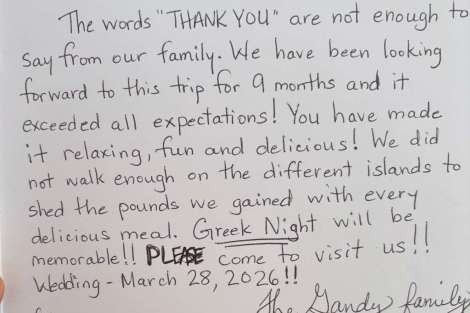 The words "THANK YOU" are not enough to
say from our family. We have been looking
forward to this trip for 9 months and it
exceeded all expectations! You have made
it relaxing, fun and delicious! We did
not walk enough on the different islands to
shed the pounds we gained with every
delicious meal. Greek Night will be
memorable!! PLEASE come to visit us!!
Wedding - March 28, 2026!!
The Gandy family